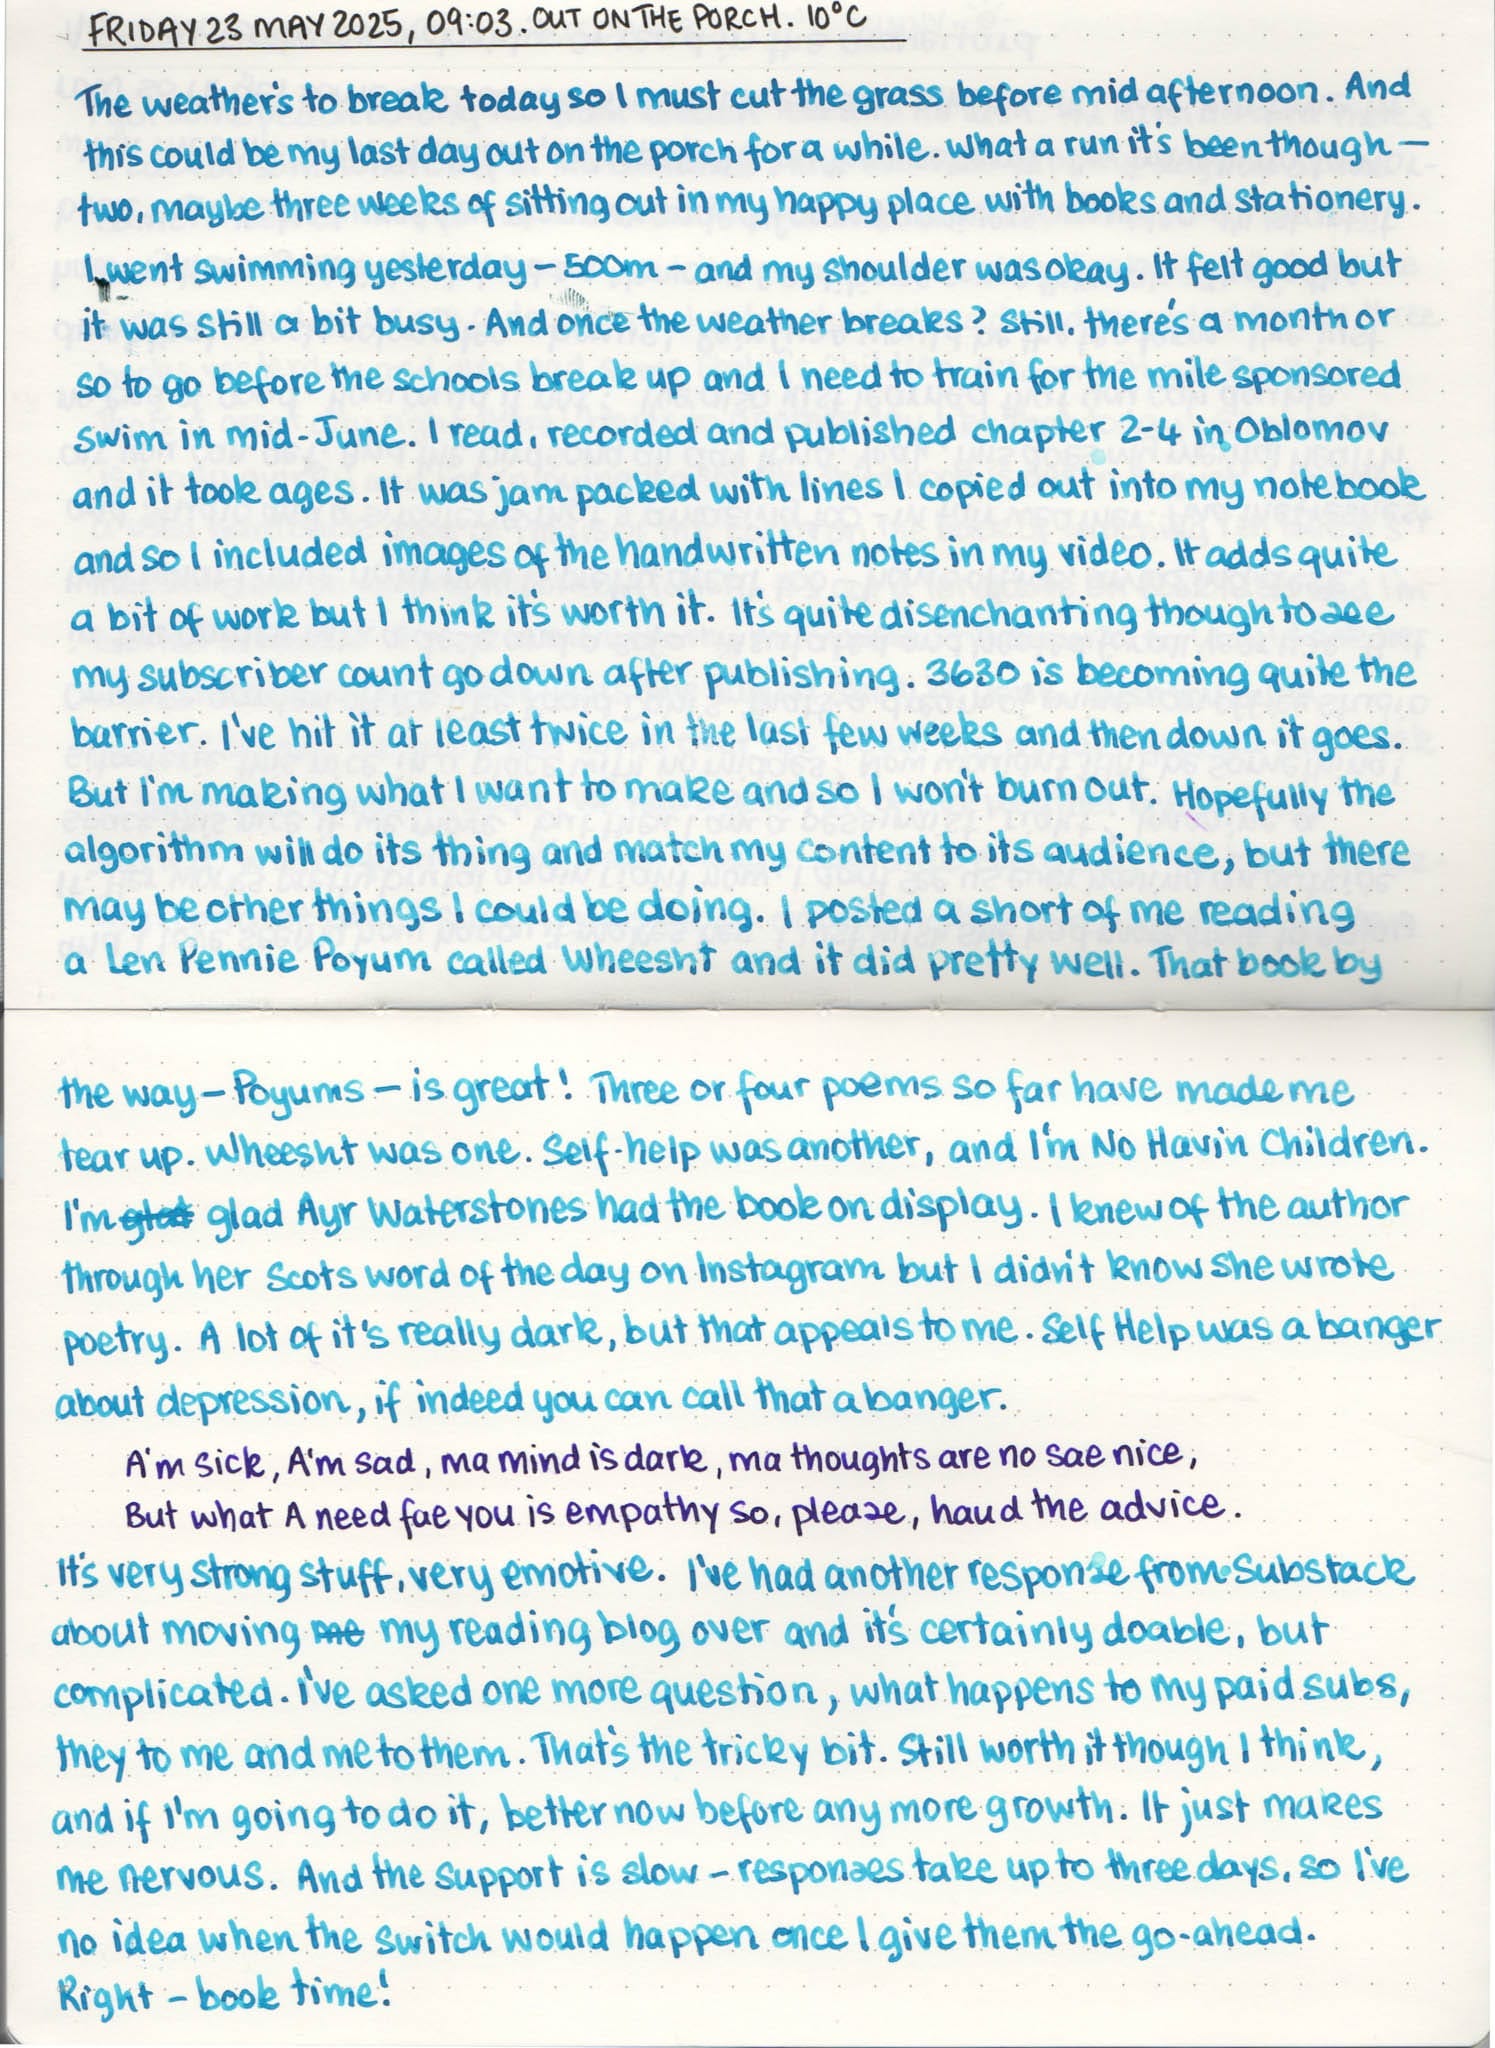 FRIDAY 23 MAY 2025, 09:03. OUT ON THE PORCH. 10°C
The weather's to break today so I must cut the grass before mid afternoon. And
this could be my last day out on the porch for a while. What a run it's been though —
two, maybe three weeks of sitting out in my happy place with books and stationery.
I went swimming yesterday – 500m – and my shoulder was okay. It felt good but
it was still a bit busy. And once the weather breaks? Still, there's a month or
so to go before the schools break up and I need to train for the mile sponsored
swim in mid-June. I read, recorded and published chapter 2-4 in Oblomov
and it took ages. It was jam packed with lines I copied out into my notebook
and so I included images of the handwritten notes in my video. It adds quite
a bit of work but I think it's worth it. It's quite disenchanting though to see
my subscriber count go down after publishing. 3630 is becoming quite the
barrier. I've hit it at least twice in the last few weeks and then down it goes.
But I'm making what I want to make and so I won't burn out. Hopefully the
algorithm will do its thing and match my content to its audience, but there
may be other things I could be doing. I posted a short of me reading
a Len Pennie Poyum called Wheesht and it did pretty well. That book by
the way – Poyums – is great! Three or four poems so far have made me
tear up. Wheesht was one. Self-help was another, and I'm No Havin Children.
I'm glad glad Ayr Waterstones had the book on display. I knew of the author
through her Scots word of the day on Instagram but I didn't know she wrote
poetry. A lot of it's really dark, but that appeals to me. Self Help was a banger
about depression, if indeed you can call that a banger.
A'm sick, A'm sad, ma mind is dark, ma thoughts are no sae nice,
But what A need fae you is empathy so, please, haud the advice.
It's very strong stuff, very emotive. I've had another response from Substack
about moving me my reading blog over and it's certainly doable, but
complicated. I've asked one more question, what happens to my paid subs,
they to me and me to them. That's the tricky bit. Still worth it though I think,
and if I'm going to do it, better now before any more growth. It just makes
me nervous. And the support is slow – responses take up to three days, so I've
no idea when the switch would happen once I give them the go-ahead.
Right – book time!